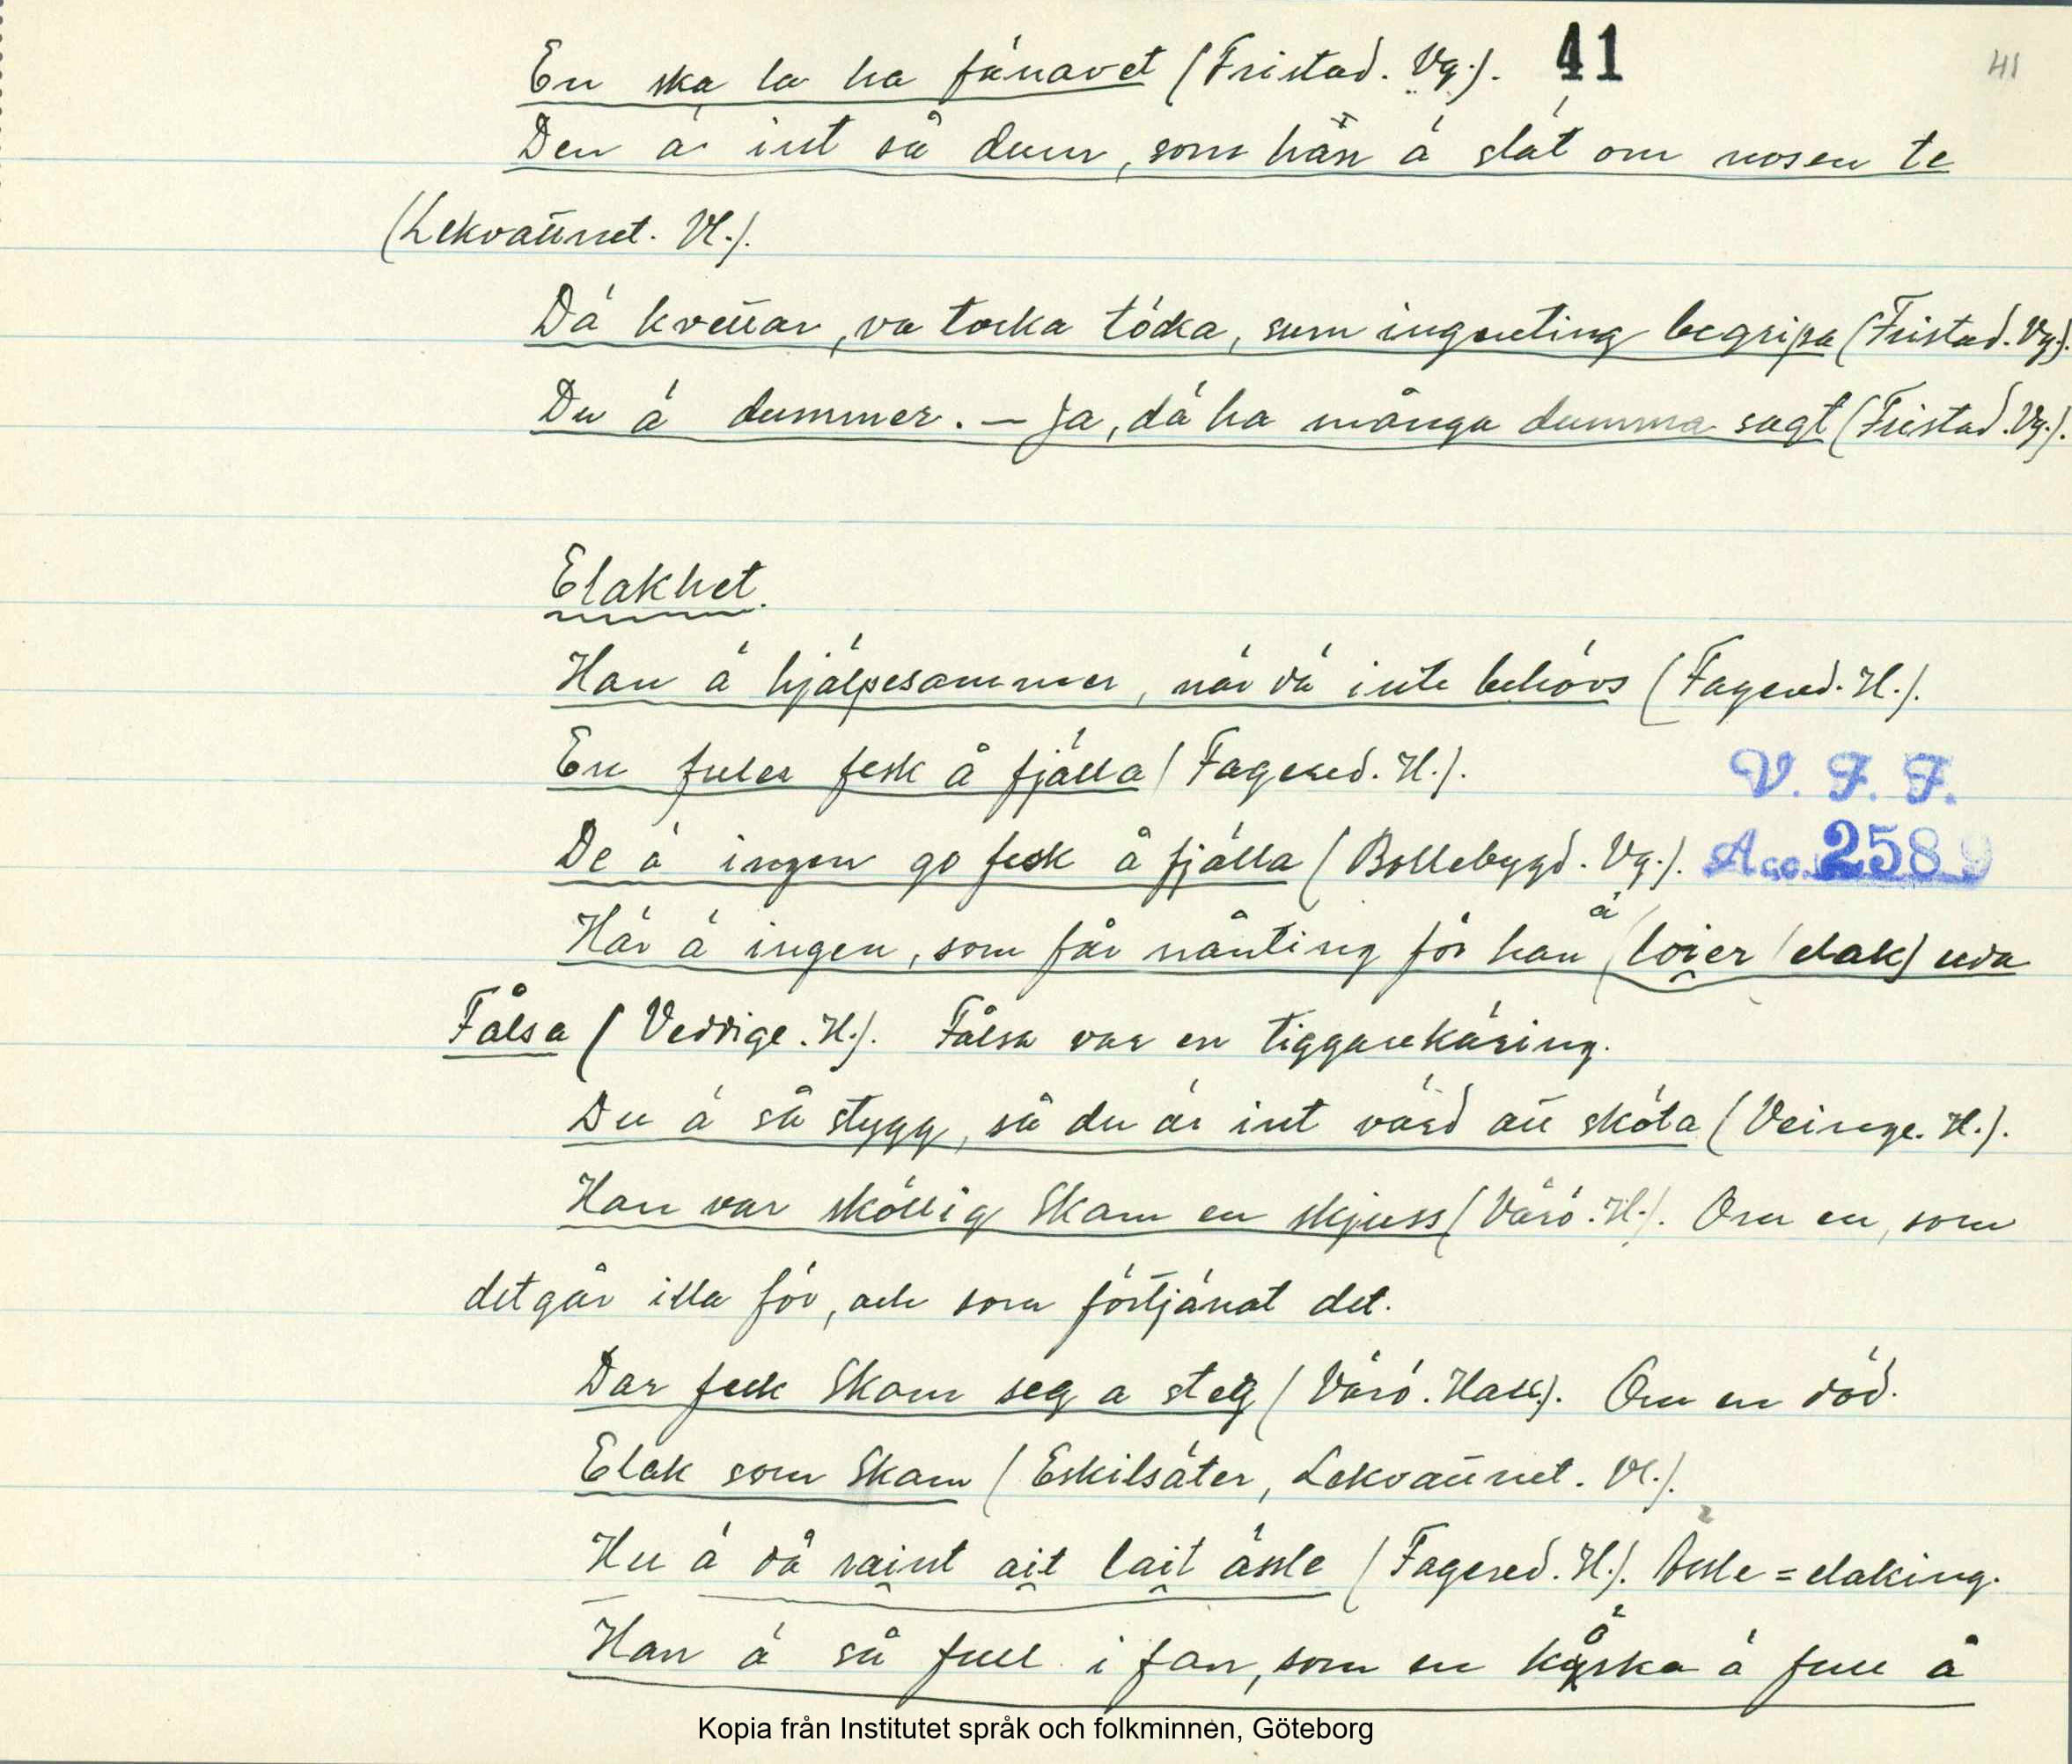 En ska la ha fänavet (Fristad. Vg.). 41 41
Den är int så dum, som hän ä slät om nosen te
(Lekvattnet. Vl.).
Dä kvettar, va tocka töcka, sum ingenting begripa (Fristad. Vg.).
Du ä dummer. – Ja, dä ha många dumma sagt (Fristad. Vg.).
Elakhet.
Han ä hjälpesammer, när dä inte behövs (Fagered. H.).
En fuler fesk å fjälla (Fagered. H.).
V. F. F.
De ä ingen go fesk å fjälla (Bollebygd. Vg.).
Acc. 2589
Här ä ingen, som får nånting för han ä loier (elak) uda
Fålsa (Veddige. H.). Fålsa var en tiggarekäring.
Du ä så stygg, så du är int värd att sköta (Veinge. H.).
Han var sköllig Skam en skjuss (Värö. H.). Om en, som
det går illa för, och som förtjänat det.
Dar feck Skam seg a steg (Värö. Hall.). Om en död.
Elak som Skam (Eskilsäter, Lekvattnet. Vl.).
Hu ä då raint ait lait äsle (Fagered. H.). Äsle = elaking.
Han ä så full i fan, som en ä full å
Kopia från Institutet språk och folkminnen, Göteborg